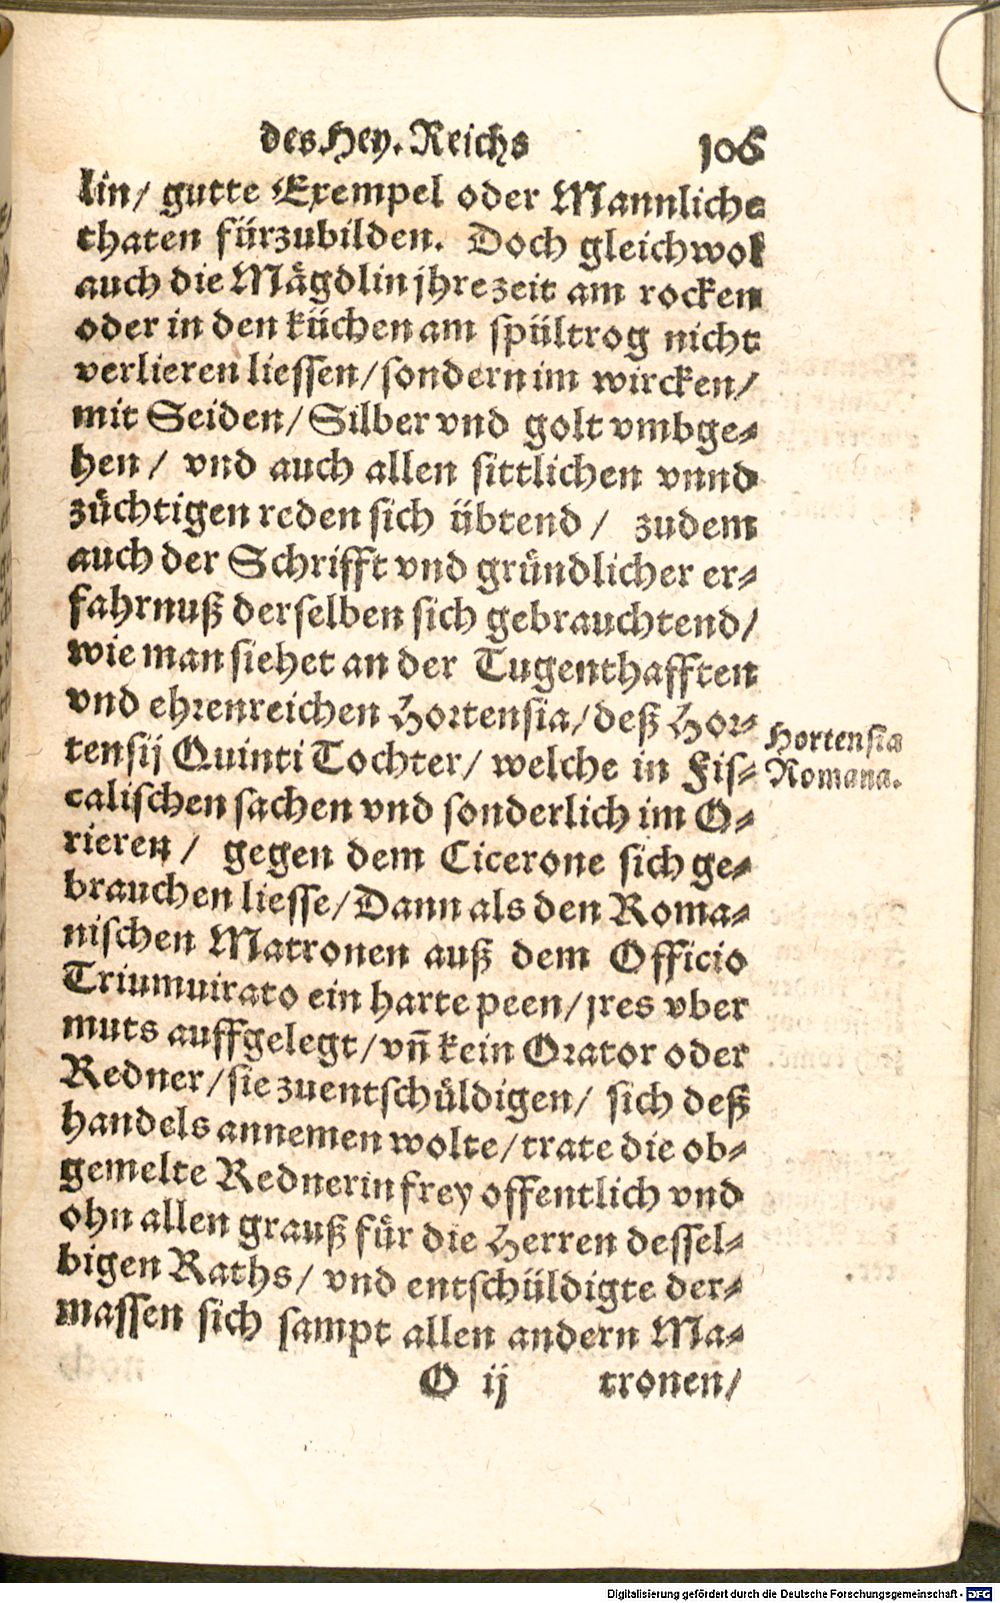 des Hey. Reichs 106
lin/ gutte Exempel oder Mannliche
thaten fürzubilden. Doch gleichwol
auch die Mägdlin jhre zeit am rocken
oder in den küchen am spültrog nicht
verlieren liessen/ sondern im wircken/
mit Seiden/ Silber vnd golt vmbge-
hen/ vnd auch allen sittlichen vnnd
züchtigen reden sich übtend/ zudem
auch der Schrifft vnd gründlicher er-
fahrnuß derselben sich gebrauchtend/
wie man siehet an der Tugenthafften
vnd ehrenreichen Hortensia/ deß Hor-
tensij Quinti Tochter/ welche in Fis-
calischen sachen vnd sonderlich im O-
rieren/ gegen dem Cicerone sich ge-
brauchen liesse/ Dann als den Roma-
nischen Matronen auß dem Officio
Triumuirato ein harte peen/ jres vber
muts auffgelegt/ vñ kein Orator oder
Redner/ sie zuentschüldigen/ sich deß
handels annemen wolte/ trate die ob-
gemelte Rednerin frey offentlich vnd
ohn allen grauß für die Herren dessel-
bigen Raths/ vnd entschüldigte der-
massen sich sampt allen andern Ma-
O ij tronen/
Hortensia
Romana.
Digitalisierung gefördert durch die Deutsche Forschungsgemeinschaft - DFG